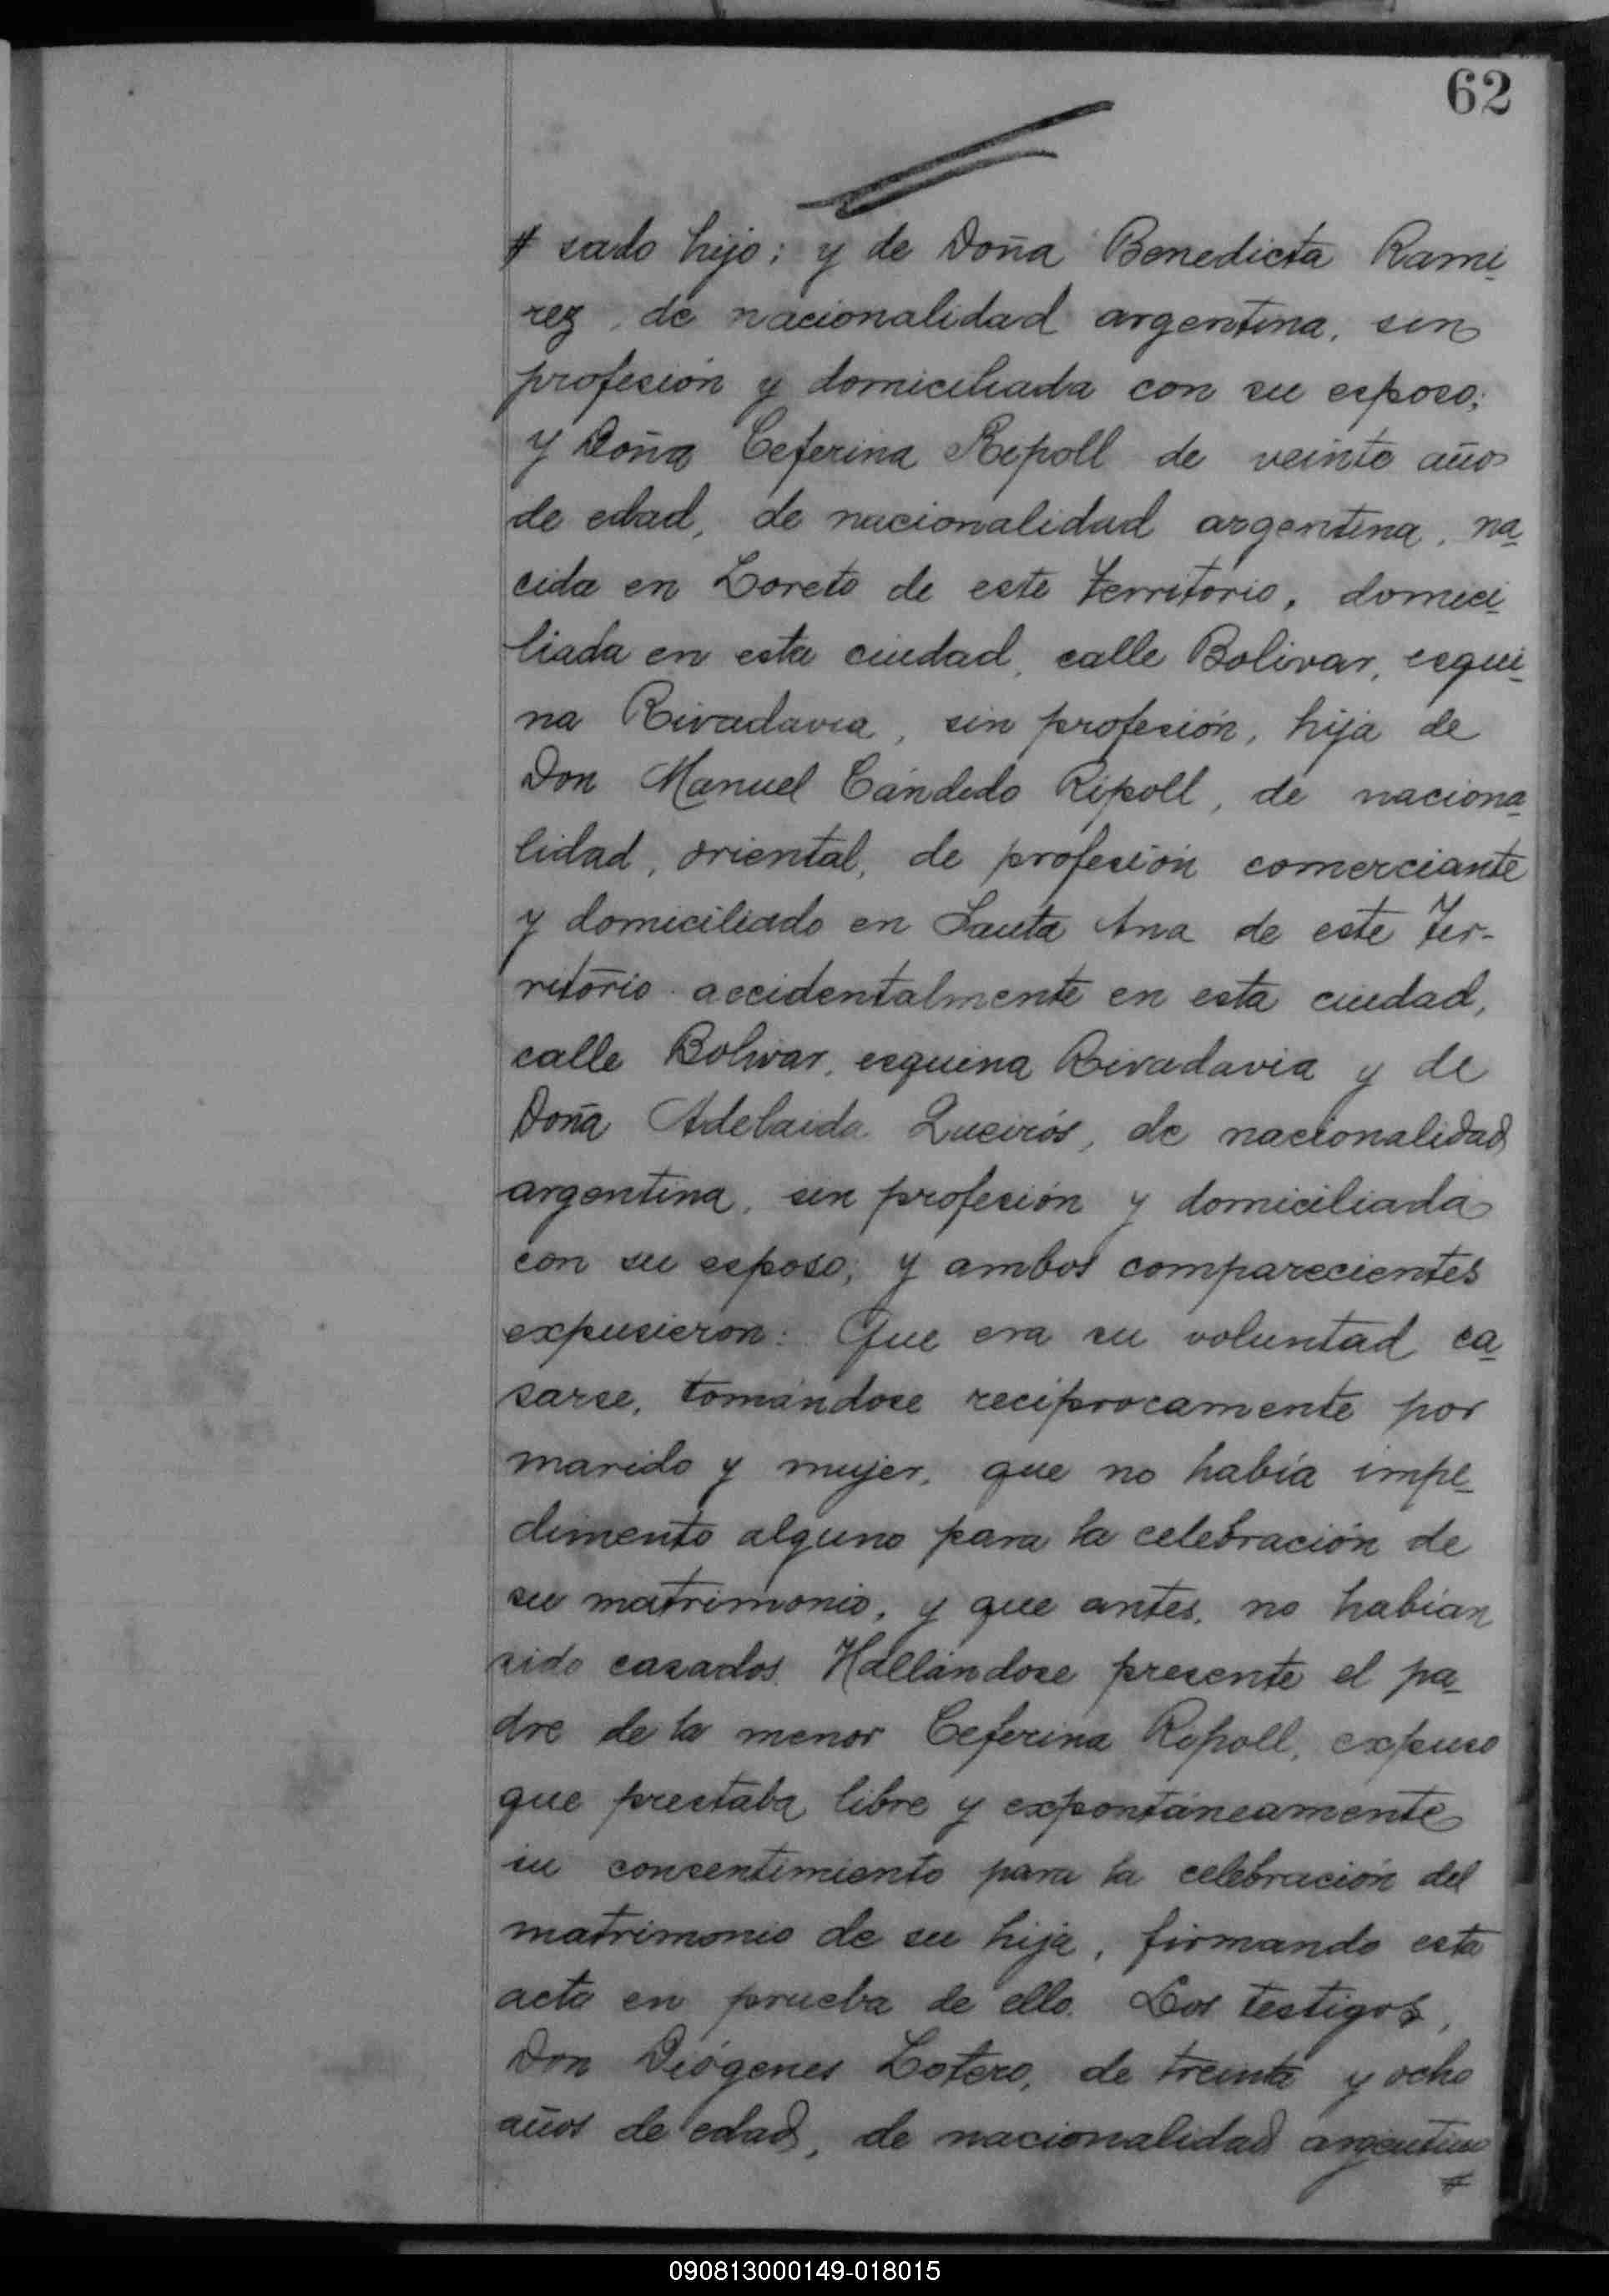 62
# sado hijo; y de Doña Benedicta Rami-
rez, de nacionalidad argentina, sin
profesión y domiciliada con su esposo;
y Doña Ceferina Ripoll de veinte años
de edad, de nacionalidad argentina, na-
cida en Loreto de este Territorio, domici-
liada en esta ciudad, calle Bolivar, esqui-
na Rivadavia, sin profesión, hija de
Don Manuel Cándido Ripoll, de naciona-
lidad, oriental, de profesión comerciante
y domiciliado en Santa Ana de este Ter-
ritorio accidentalmente en esta ciudad,
calle Bolivar, esquina Rivadavia y de
Doña Adelaida Queirós, de nacionalidad
argentina, sin profesión y domiciliada
con su esposo; y ambos comparecientes
expusieron: Que era su voluntad ca-
sarse, tomándose recíprocamente por
marido y mujer, que no había impe-
dimento alguno para la celebración de
su matrimonio, y que antes, no habían
sido casados. Hallándose presente el pa-
dre de la menor Ceferina Ripoll, expuso
que prestaba libre y expontáneamente
su consentimiento para la celebración del
matrimonio de su hija, firmando esta
acta en prueba de ello. Los testigos,
Don Diógenes Lotero, de treinta y ocho
años de edad, de nacionalidad argentino
#
090813000149-018015